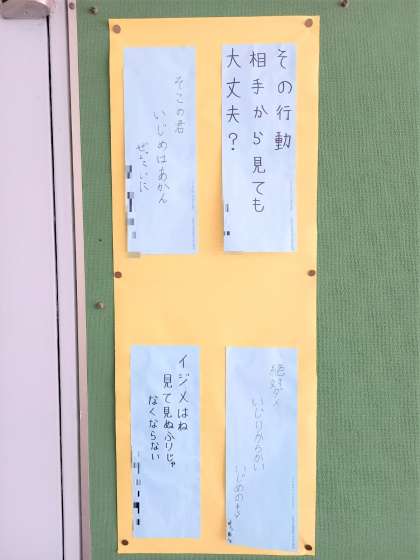 その行動
相手から見ても
大丈夫？
そこの君
いじめはあかん
ぜったいに
絶対ダメ
いじりからかい
いじめのもと
イジメはね
見て見ぬふりじゃ
なくならない